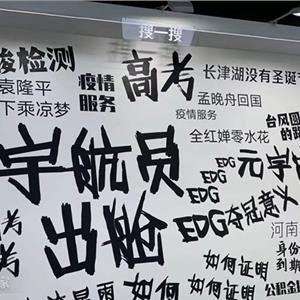 搜一搜
酸检测
疫情
服务
高考
长津湖没有圣诞
袁隆平
下乘凉梦
孟晚舟回国
疫情服务
台风圆
全红婵零水花
宇航员
EDG
元宇
EDG
EDG夺冠意义
考
出舱
河南
身份
到期
如何证明
如何
如何证明
公积金
家